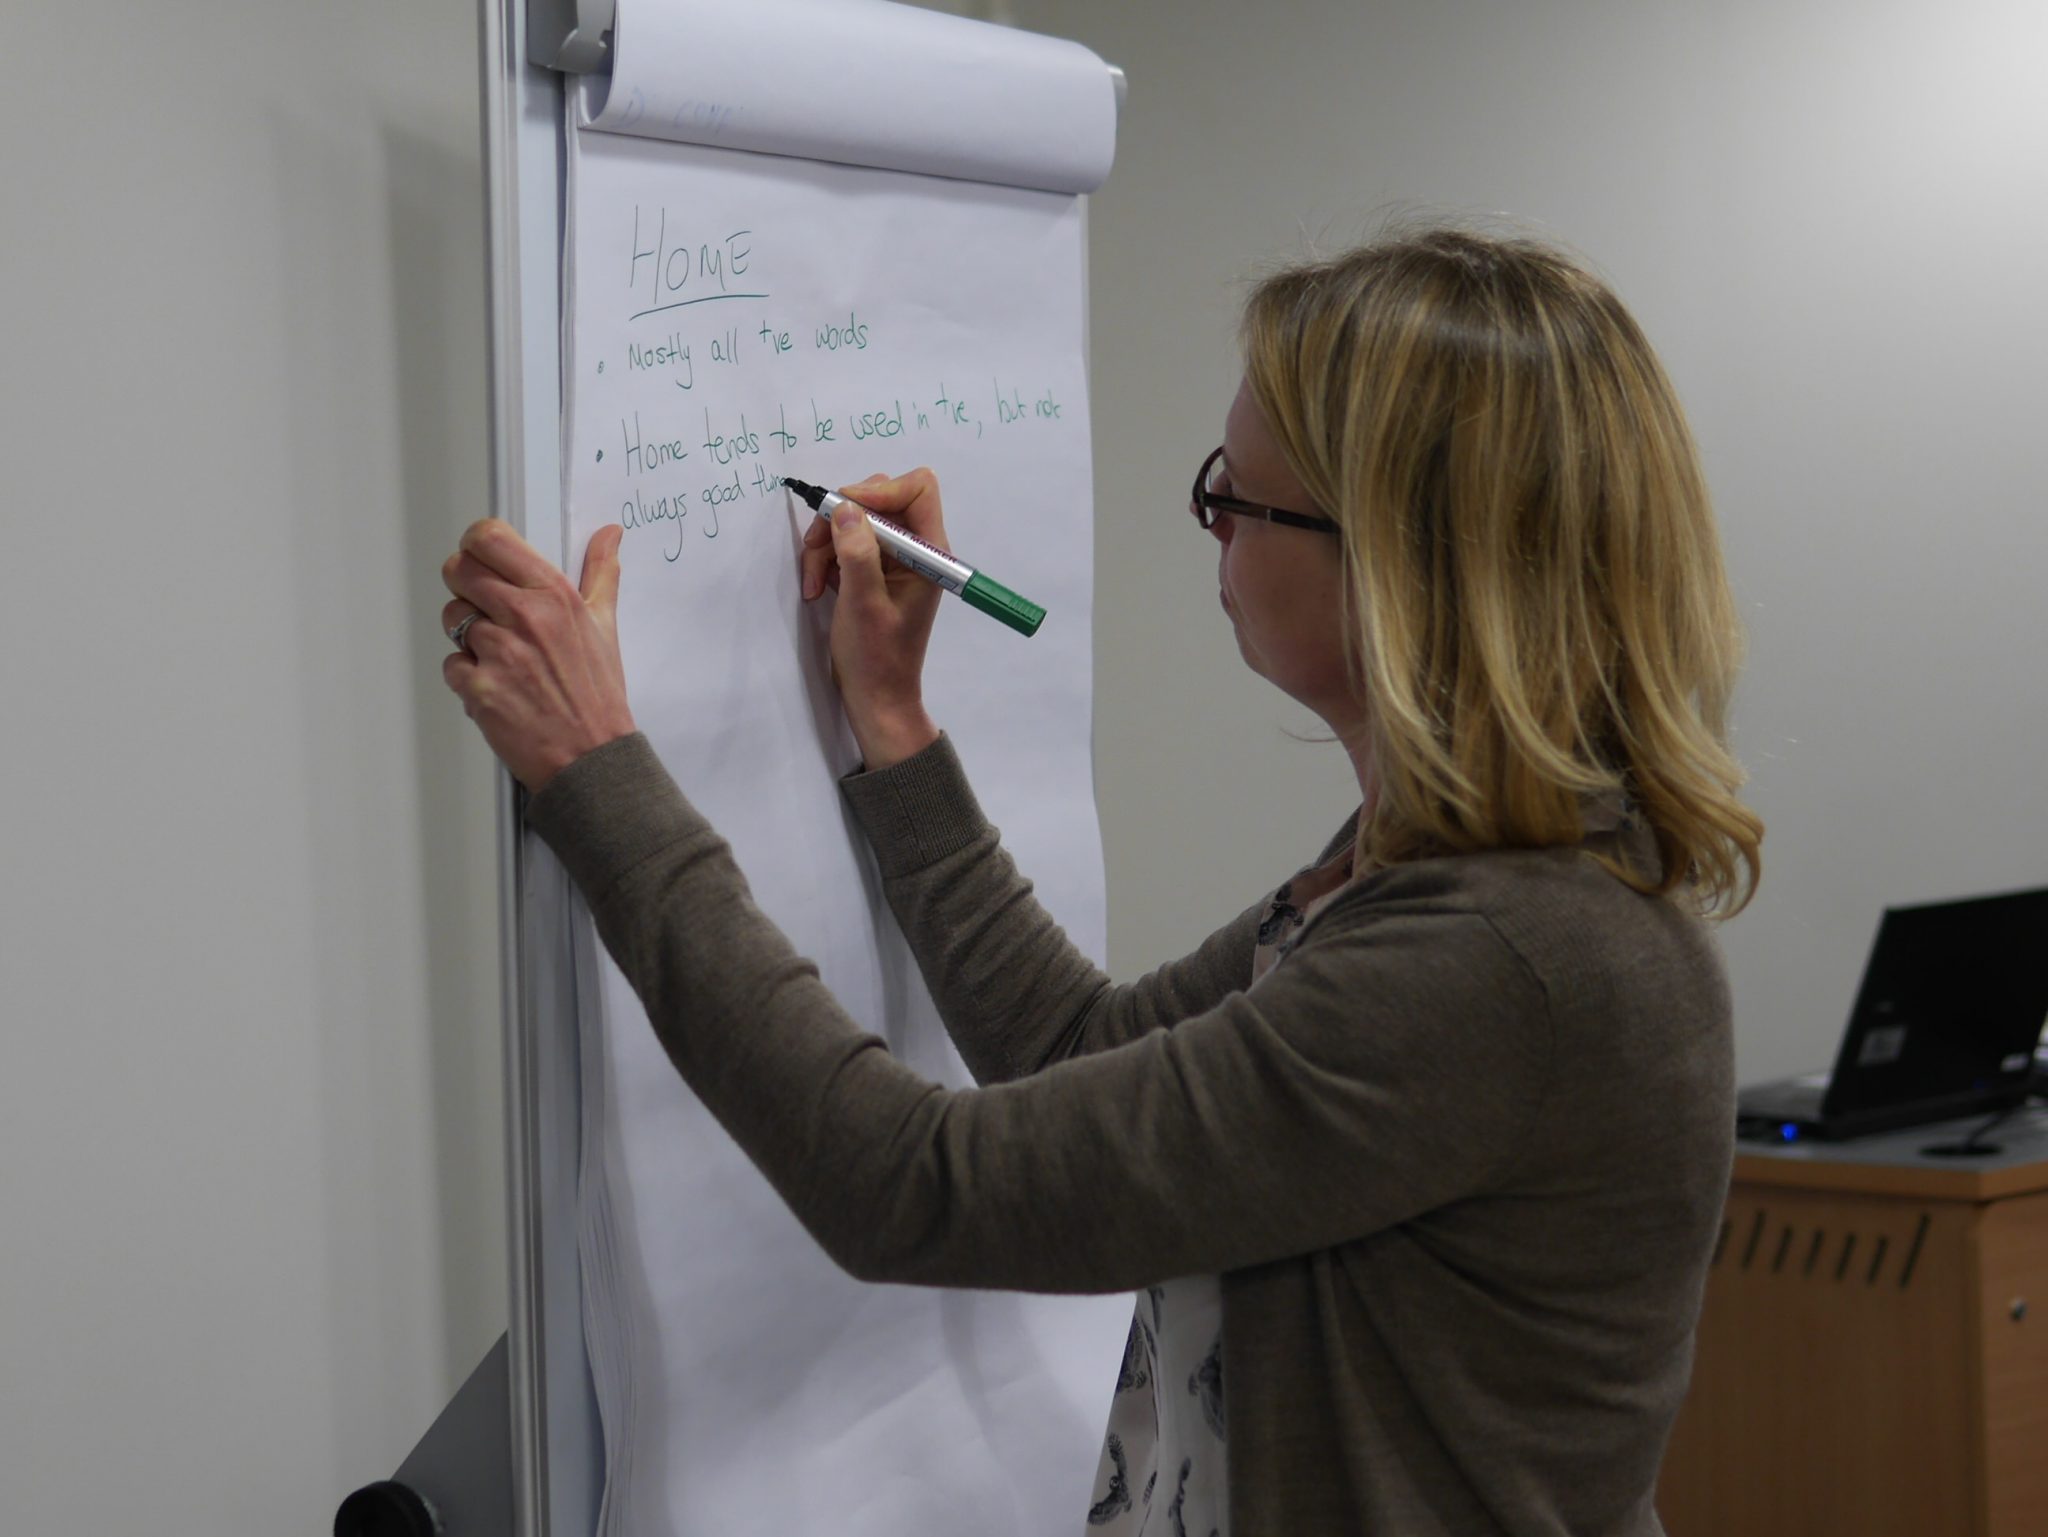 HOME
• Mostly all +ve words
• Home tends to be used in +ve, but not
always good thing
CHART MARKER